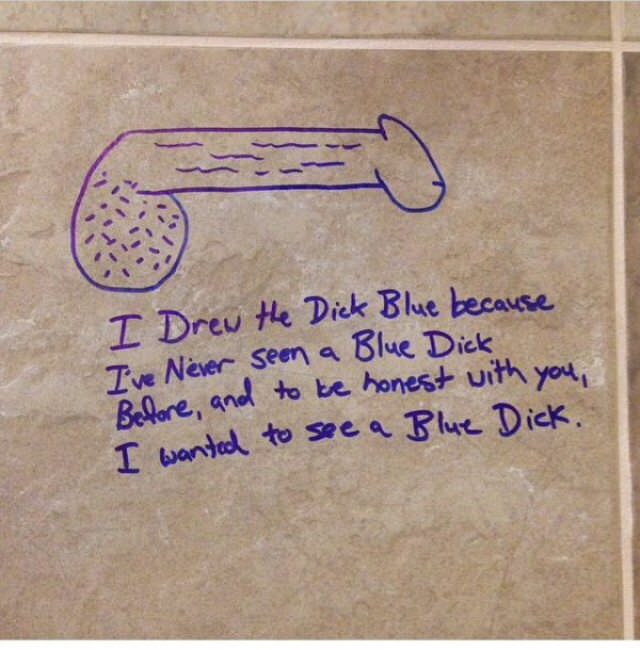 I Drew the Dick Blue because
I've Never seen a Blue Dick
Before, and to be honest with you,
I wanted to see a Blue Dick.